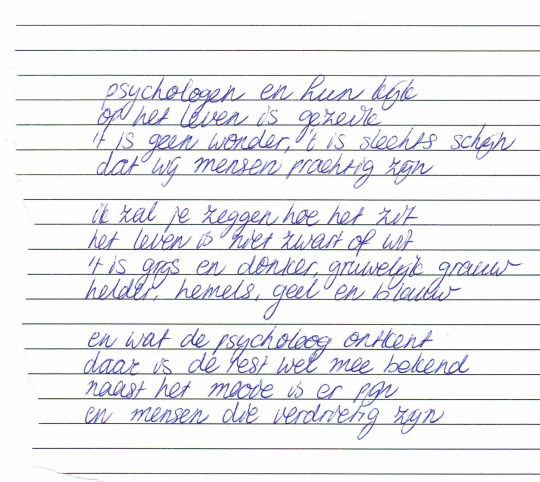 psychologen en hun kijk
op het leven is gezeik
't is geen wonder, 't is slechts schijn
dat wij mensen prachtig zijn
ik zal je zeggen hoe het zit
het leven is niet zwart of wit
't is grijs en donker, gruwelijk grauw
helder, hemels, geel en blauw
en wat de psycholoog ontkent
daar is de rest wel mee bekend
naast het mooie is er pijn
en mensen die verdrietig zijn